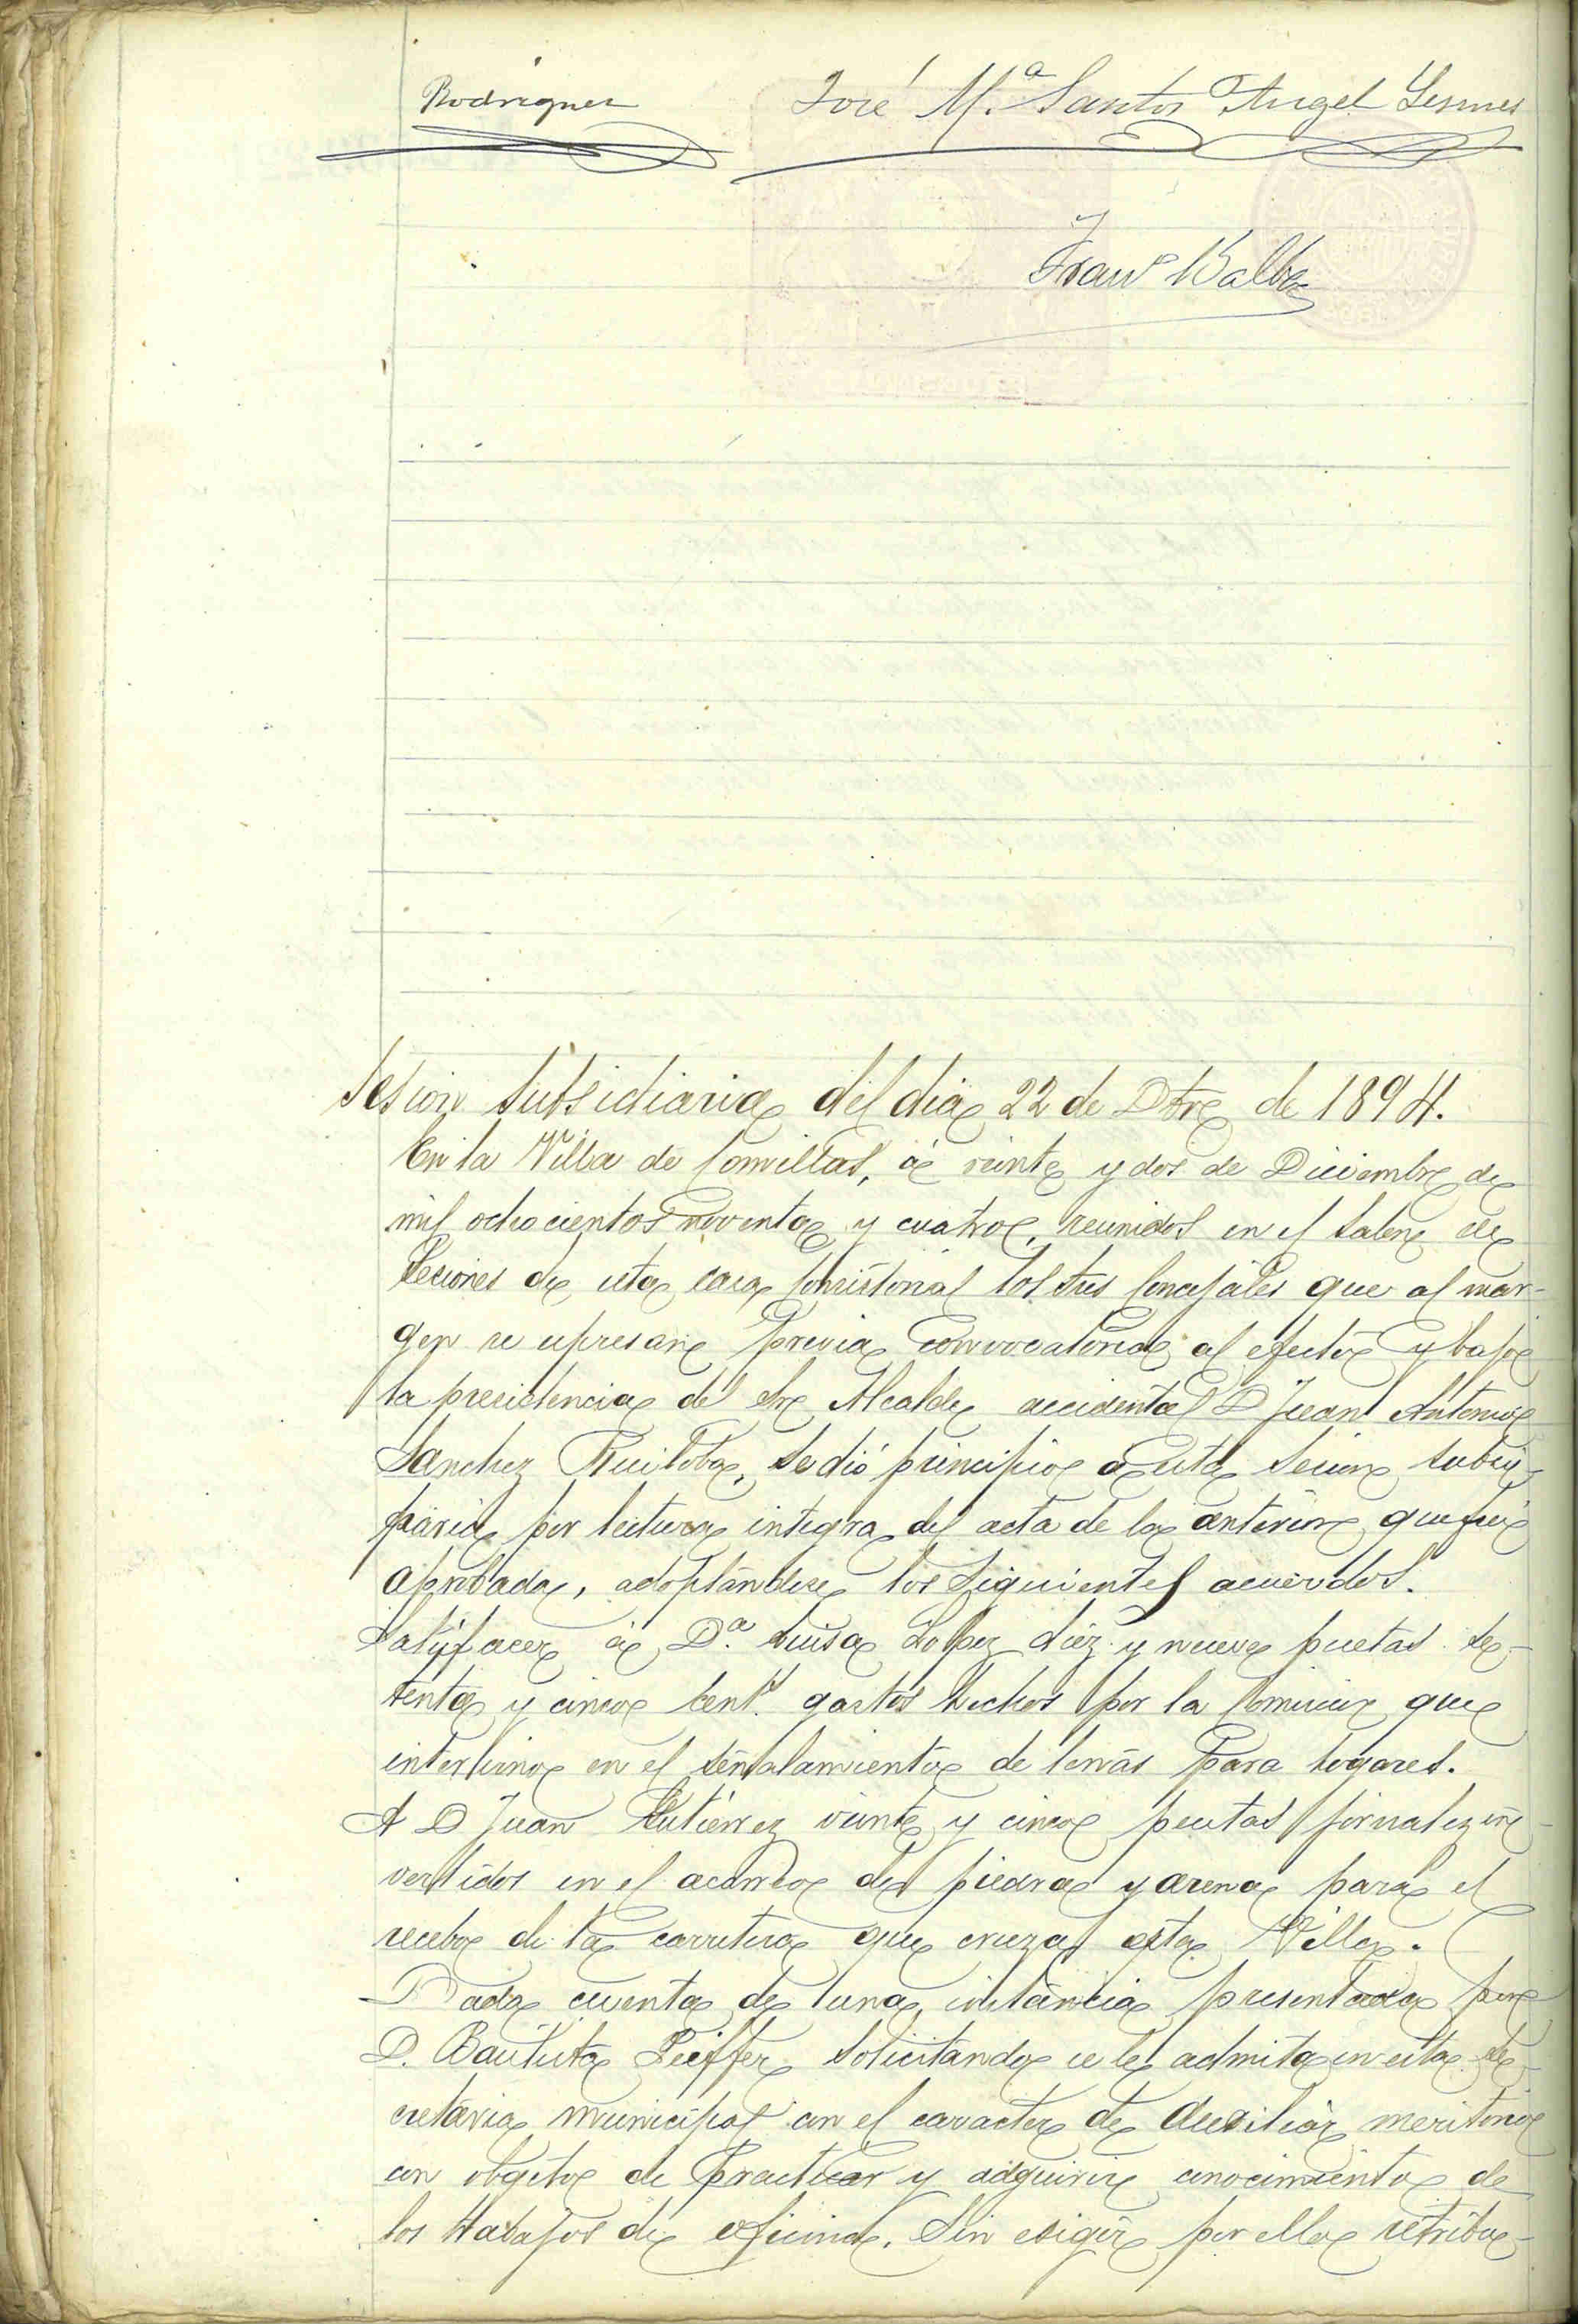 Rodriguez José M.ª Santos Angel Lesmes
Franco Balbas
Sesion subsidiaria del dia 22 de Dbre de 1894.
En la Villa de Comillas, á veinte y dos de Diciembre de
mil ochocientos noventa y cuatro, reunidos en el salon de
Seciones de esta casa Consistorial los Sres Concejáles que al mar-
gen se espresan previa convocatoria al efecto y bajo
la presidencia del Sr Alcalde accidental D Juan Antonio
Sanchez Ruiloba, se dió principio a esta secion subsi-
diaria por lectura integra del acta de la anterior que fué
aprobada, adoptándose los siguientes acuerdos.
Satisfacer á D.ª Luisa Lopez diez y nueve pesetas se-
tenta y cinco cent.s gastos hechos por la Comision que
intervino en el señalamiento de leñas para hogares.
A D Juan Gutiérrez veinte y cinco pesetas jornales in-
vertidos en el acarreo de piedra y arena para el
recebo de la carretera que cruza esta Villa.
Dada cuenta de una instáncia presentada por
D. Bautista Peiffer solicitando se le admita en esta Se-
cretaria municipal con el caracter de Auxiliar meritorio
con objeto de practicar y adquirir conocimiento de
los trabajos de oficina, Sin esigir por ello retribu-